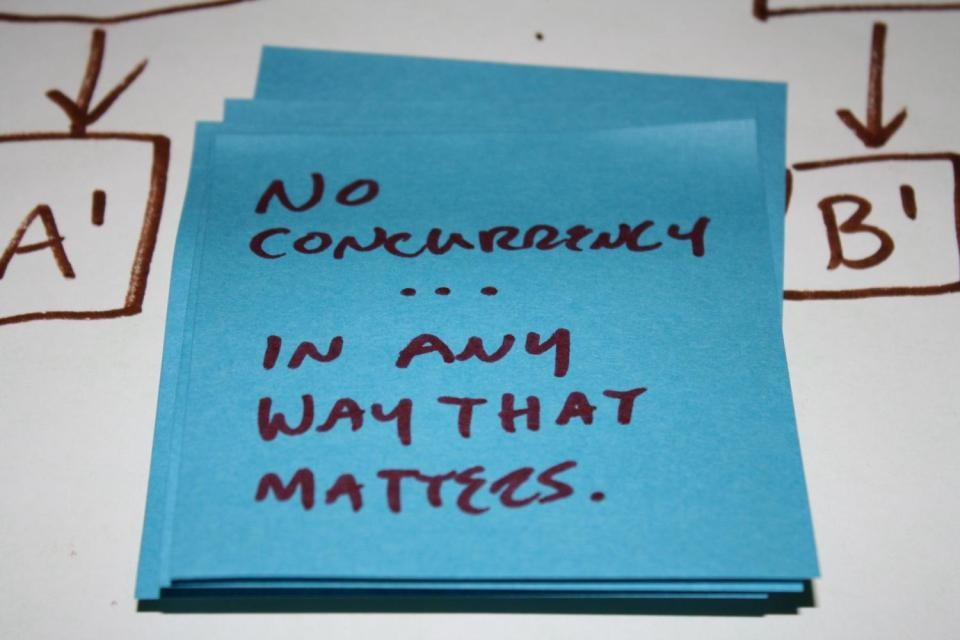 A'
B'
NO
CONCURRENCY
...
IN ANY
WAY THAT
MATTERS.